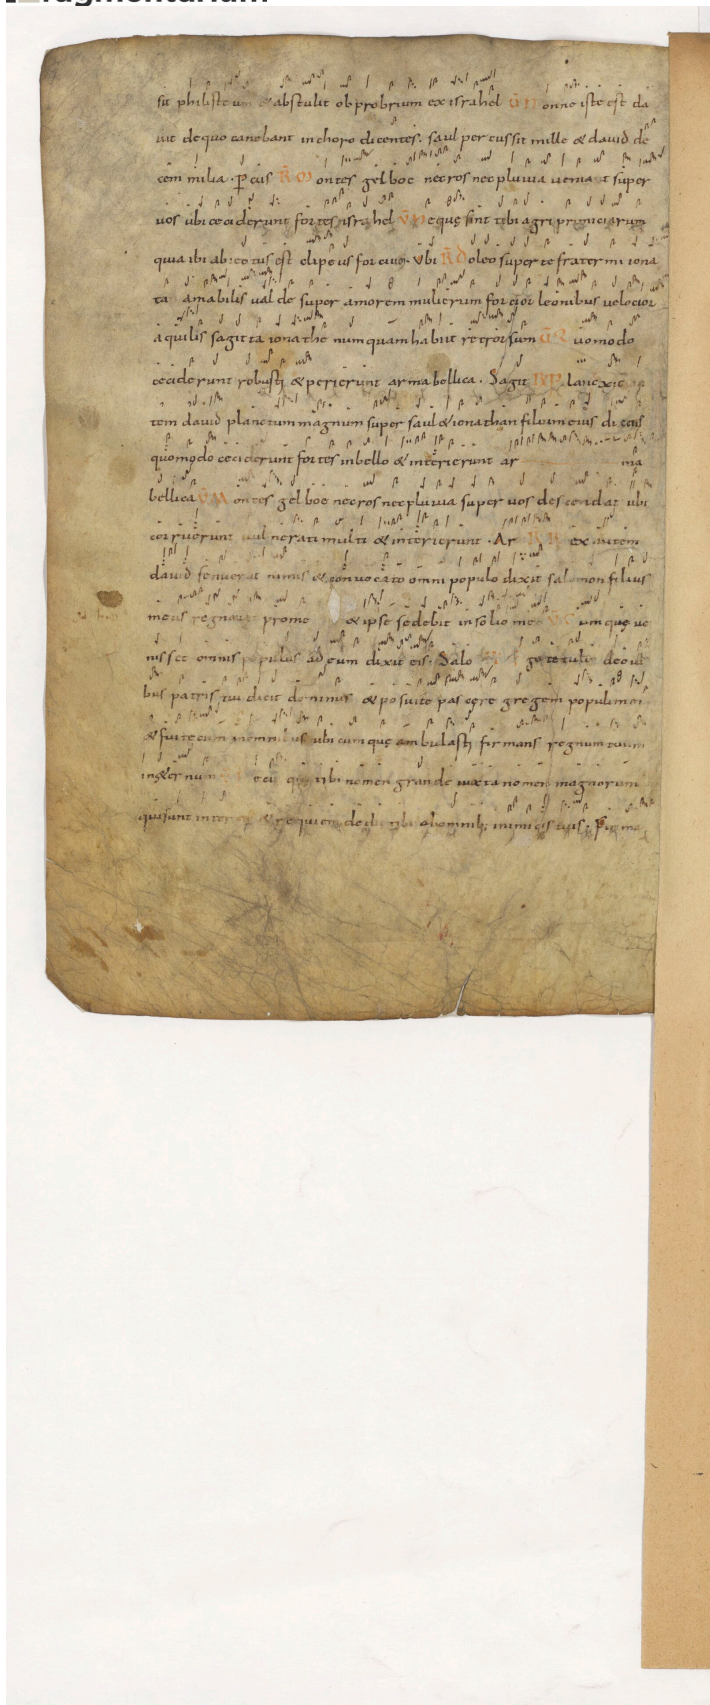 sit philisteum & abstulit obprobrium ex israhel V̄ Nonne iste est da
uit de quo canebant in choro dicentes. saul percussit mille & dauid de
cem milia. P̄cus R̄ Montes gelboe nec ros nec pluuia ueniant super
uos ubi ceciderunt fortes israhel V̄ Neque sint tibi agri primiciarum
quia ibi abiectus est clipeus forcium. Ubi R̄ Doleo super te frater mi iona
tha amabilis ualde super amorem mulierum forcior leonibus uelocior
aquilis sagitta ionathe numquam habuit retrorsum V̄ Quomodo
ceciderunt robusti & perierunt arma bellica. Sagit R̄ Planxit
tem dauid planctum magnum super saul & ionathan filium eius dicens
quomodo ceciderunt fortes in bello & interierunt ar ma
bellica V̄ Montes gelboe nec ros nec pluuia super uos descendat ubi
corruerunt uulnerati multi & interierunt. Ar R̄ Rex autem
dauid senuerat nimis & conuocato omni populo dixit salomon filius
meus regnauit pro me & ipse sedebit in solio meo V̄ Cumque ue
nisset omnis populus ad eum dixit eis. Salo R̄ Ego te tuli de oui
bus patris tui dicit dominus & posui te pascere gregem populi mei
& fui tecum in omnibus ubicumque ambulasti firmans regnum tuum
in &ernum feci que tibi nomen grande iuxta nomen magnorum
qui sunt in terra & requiem dedi tibi ab omnib; inimicis tuis. Firma